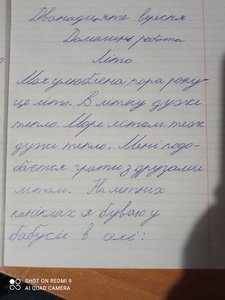 Дванадцяте вересня
Домашня робота
Літо
Моя улюблена пора року-
це літо. Влітку дуже
тепло. Море літом теж
дуже тепло. Мені подо-
бається грати з друзями
літом. На літніх
канікулах я буваю у
бабусі в селі:
SHOT ON REDMI 9
AI QUAD CAMERA